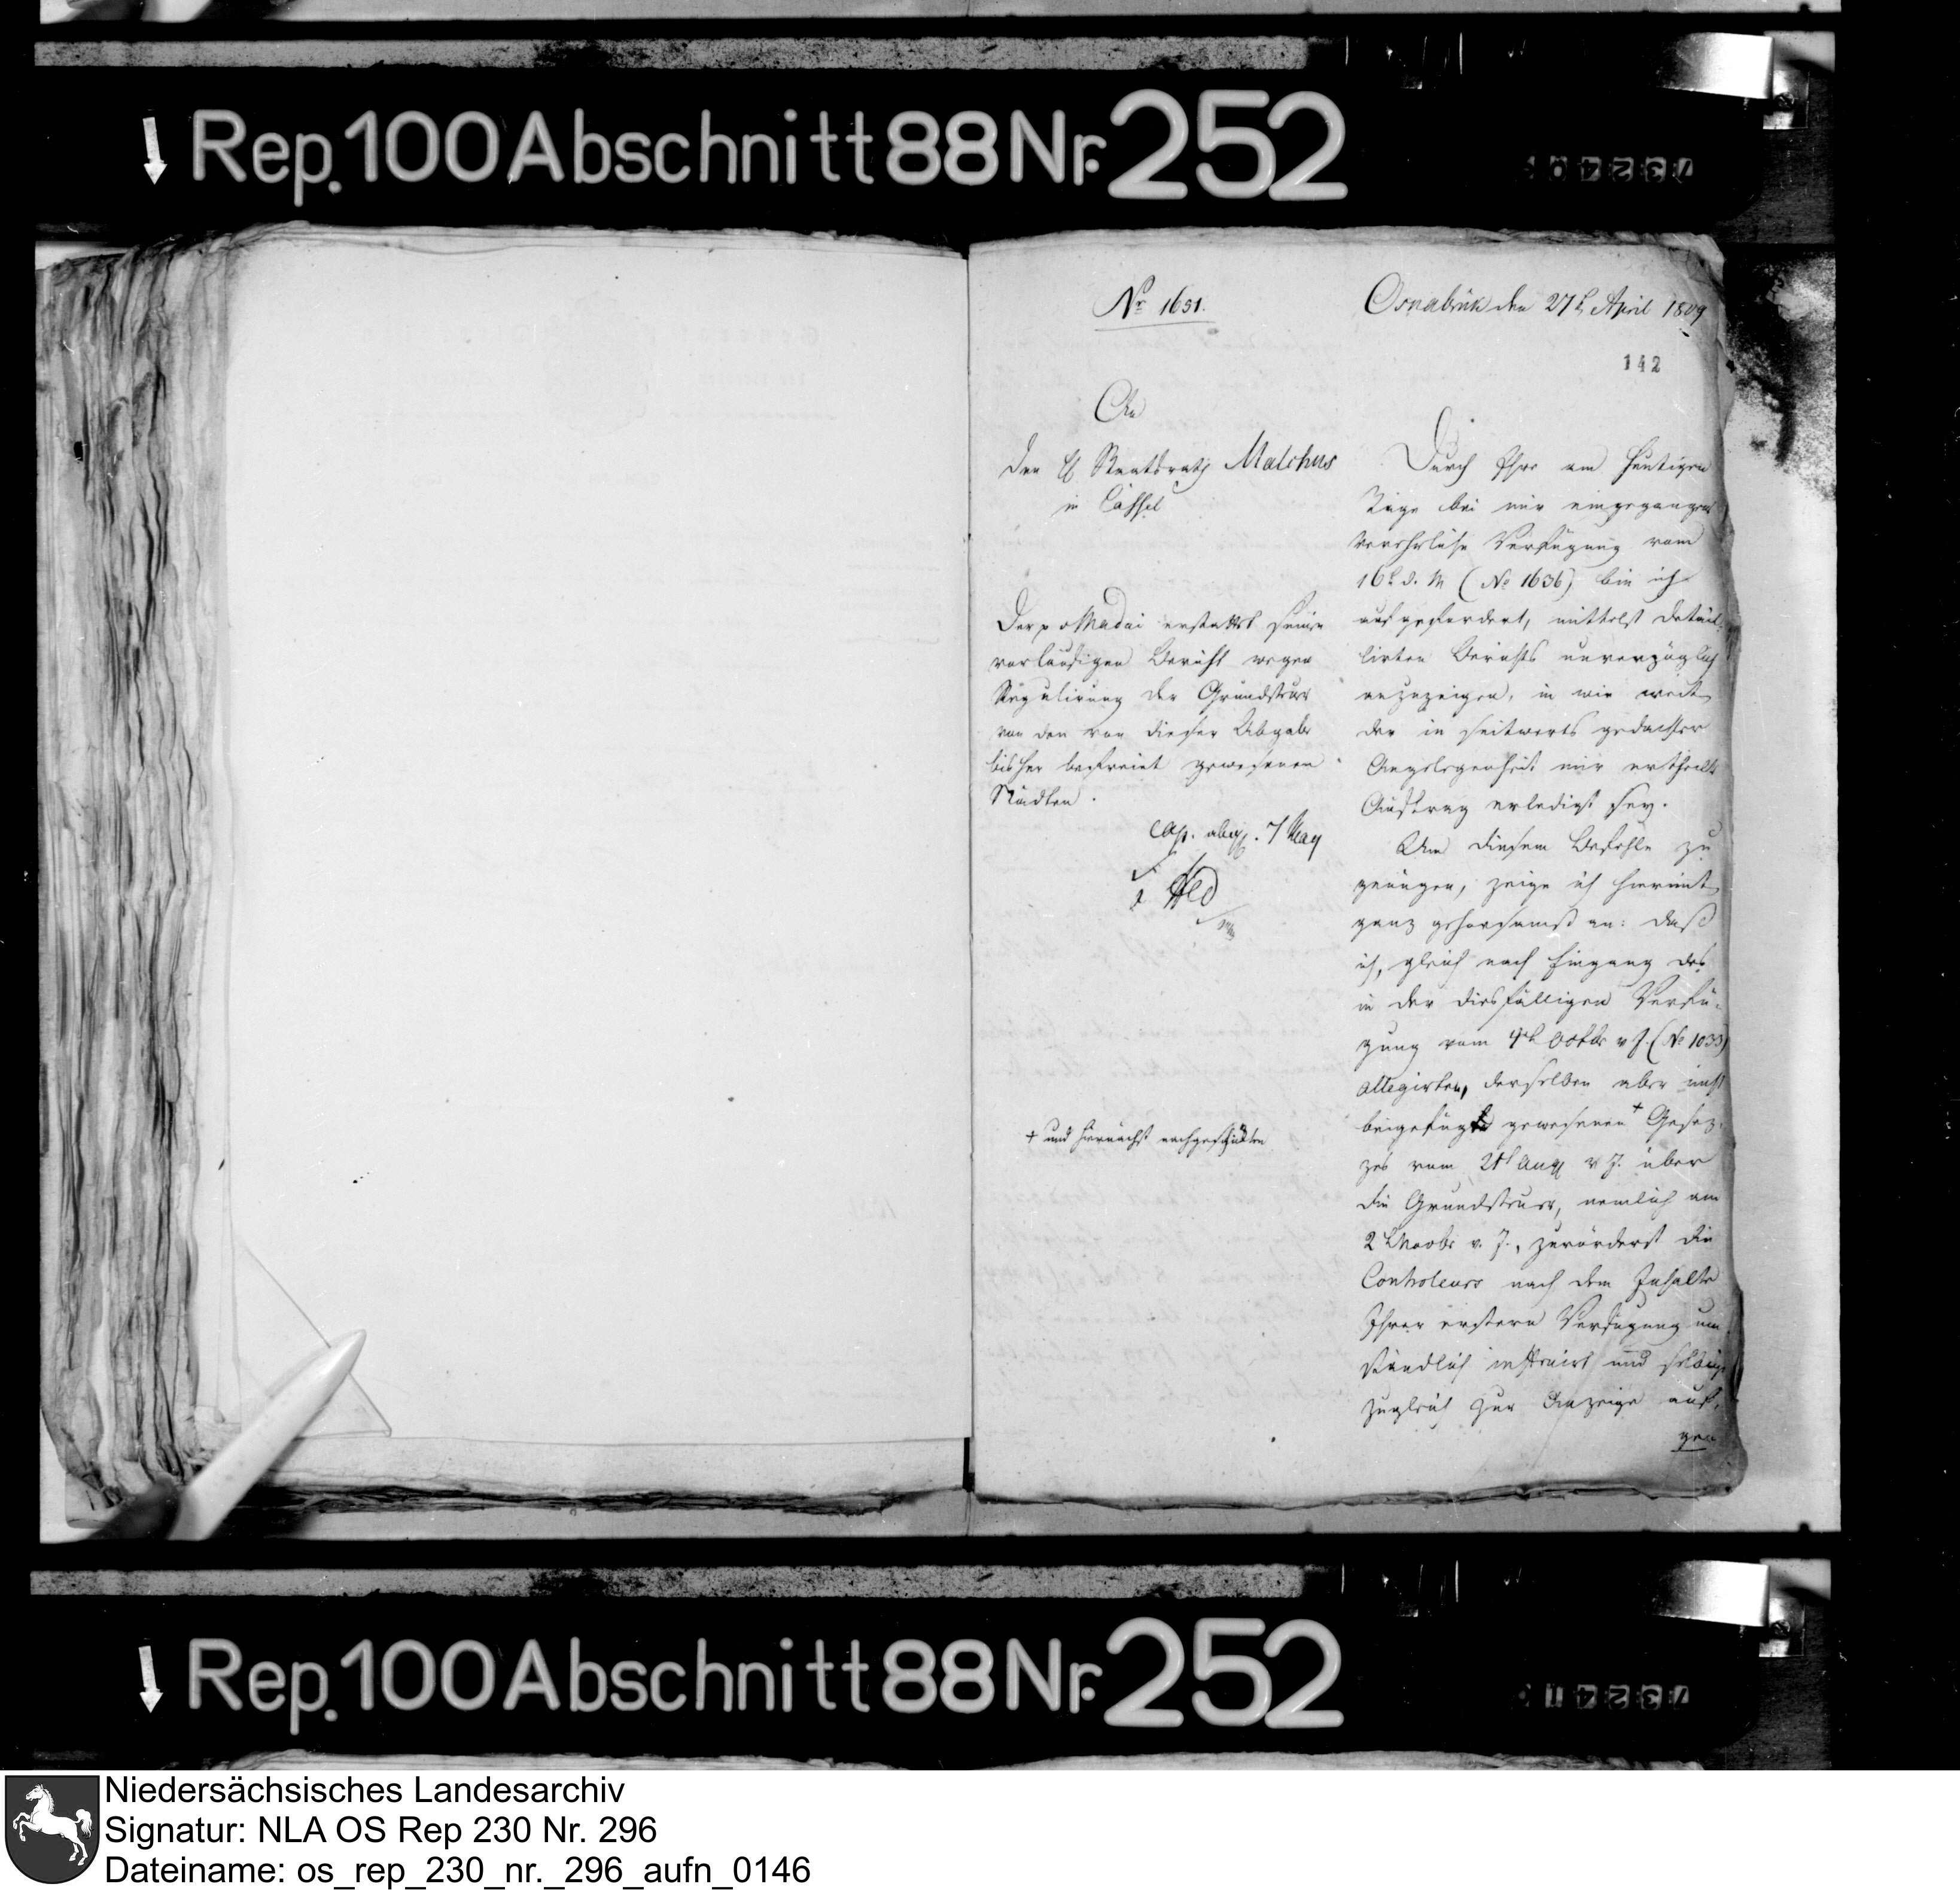 Rep.100 Abschnitt 88 Nr. 252
73240
No 1651.
Osnabrük den 27t April 1809
142
An
den H. Staatsrath Malchus
in Cassel
Der p v Madai erstattet seinen
vorläufigen Bericht wegen
Regulirung der Grundsteuer
von den von dieser Abgabe
bisher befreiet gewesenen
Städten.
exp. abgg. 7 May
+ und hiernächst nachgeschickten
Durch Ihre am heutigen
Tage bei mir eingegangene
verehrliche Verfügung vom
16t d. M (No 1636) bin ich
aufgefordert, mittelst detail-
lirten Berichts unverzüglich
anzuzeigen, in wie weit
der in seitwerts gedachter
Angelegenheit mir ertheilte
Auftrag erledigt sey.
Um diesem Befehle zu
genügen, zeige ich hiermit
ganz gehorsamst an: daß
ich, gleich nach Eingang des
in der diesfälligen Verfü-
gung vom 4t Octbr v J. (No 1033)
allegirten, derselben aber nicht
beigefügt gewesenen + Gesez-
zes vom 21t Aug v J. über
die Grundsteuer, nemlich am
2t Novbr v. J., zuvörderst die
Controleurs nach dem Inhalte
Ihrer erstern Verfügung um
ständlich instruirt und selbige
zugleich zur Anzeige auf-
gen
Rep.100 Abschnitt 88 Nr. 252
73241
Niedersächsisches Landesarchiv
Signatur: NLA OS Rep 230 Nr. 296
Dateiname: os_rep_230_nr._296_aufn_0146